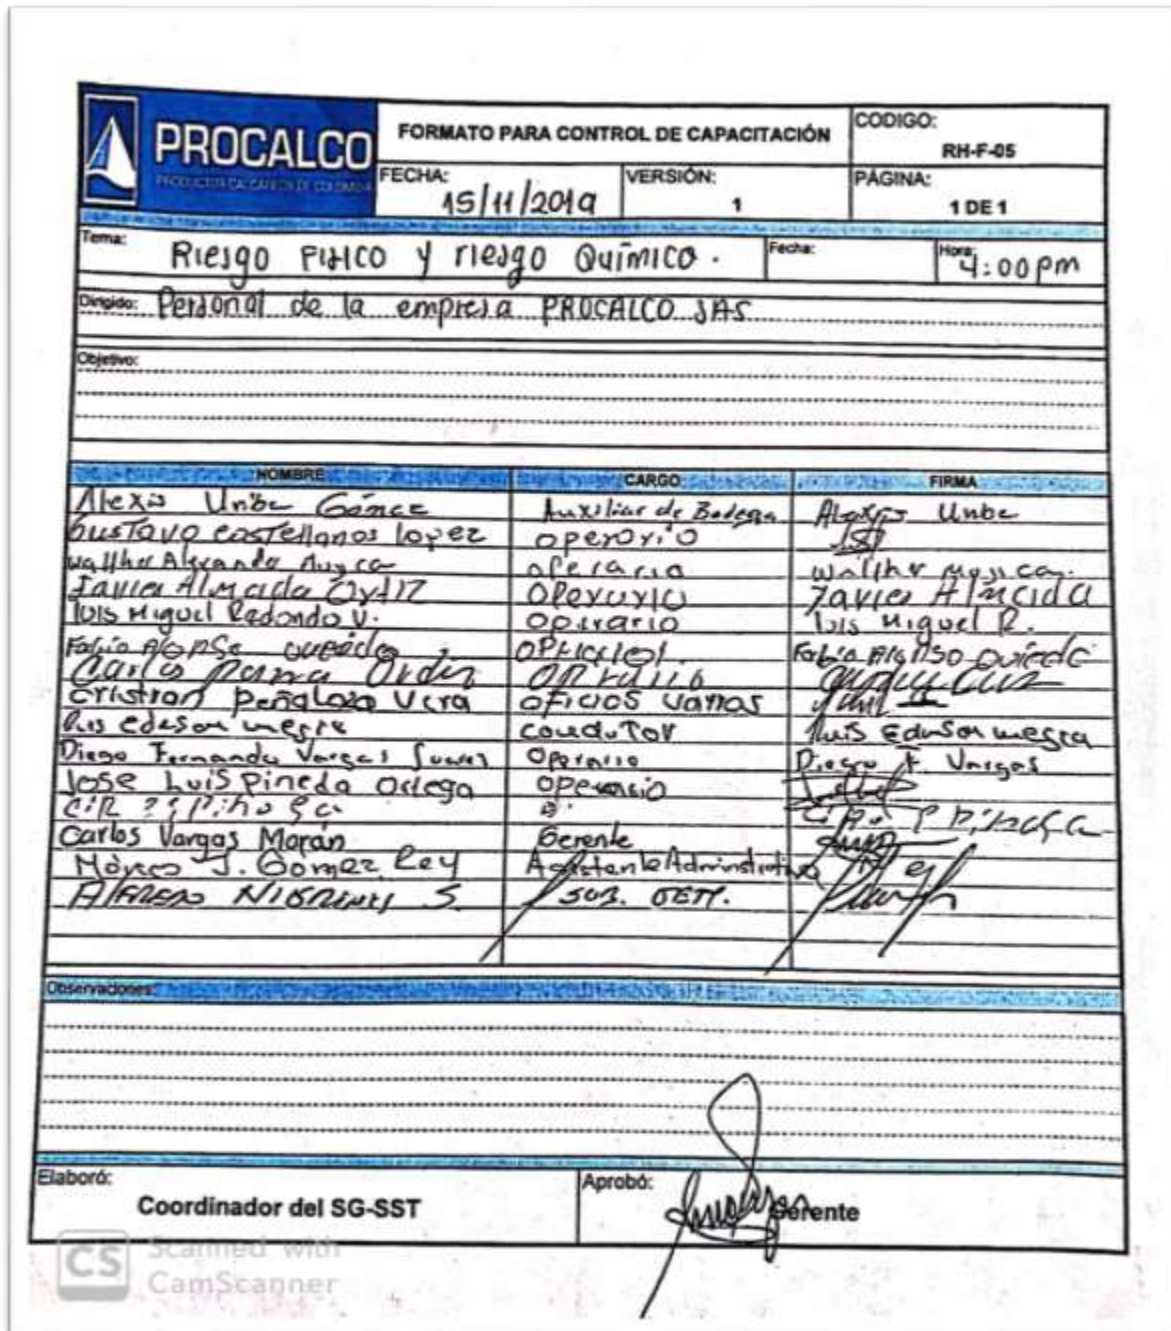 PROCALCO
PRODUCTOS CALCAREOS DE COLOMBIA
FORMATO PARA CONTROL DE CAPACITACIÓN
CODIGO:
RH-F-05
FECHA:
15/11/2019
VERSIÓN:
1
PÁGINA:
1 DE 1
Tema: Riesgo Fisico y riesgo Químico.
Fecha:
Hora: 4:00 pm
Dirigido: Personal de la empresa PROCALCO SAS
Objetivo:
NOMBRE CARGO FIRMA
Alexis Uribe Gómez Auxiliar de Bodega Alexis Uribe
Gustavo castellanos lopez operario
Walther Alexander operario Walther
Javier Almeida Ortiz Operario Javier Almeida
luis Miguel Redondo V. Operario luis Miguel R.
Fabio Alonso Oviedo Fabio Alonso Oviedo
Carlos Parra Operario
Cristian Peñaloza Vera oficios varios
luis Edeson conductor luis Edeson
Diego Fernando Vargas Suarez Operario Diego F. Vargas
Jose Luis Pineda Ortega operario
Carlos Vargas Morán Gerente
J. Gomez Rey Asistente Administrativo
Alfredo S. SUB.
Observaciones:
Elaboró:
Coordinador del SG-SST
Aprobó:
Gerente
CS Scanned with
CamScanner